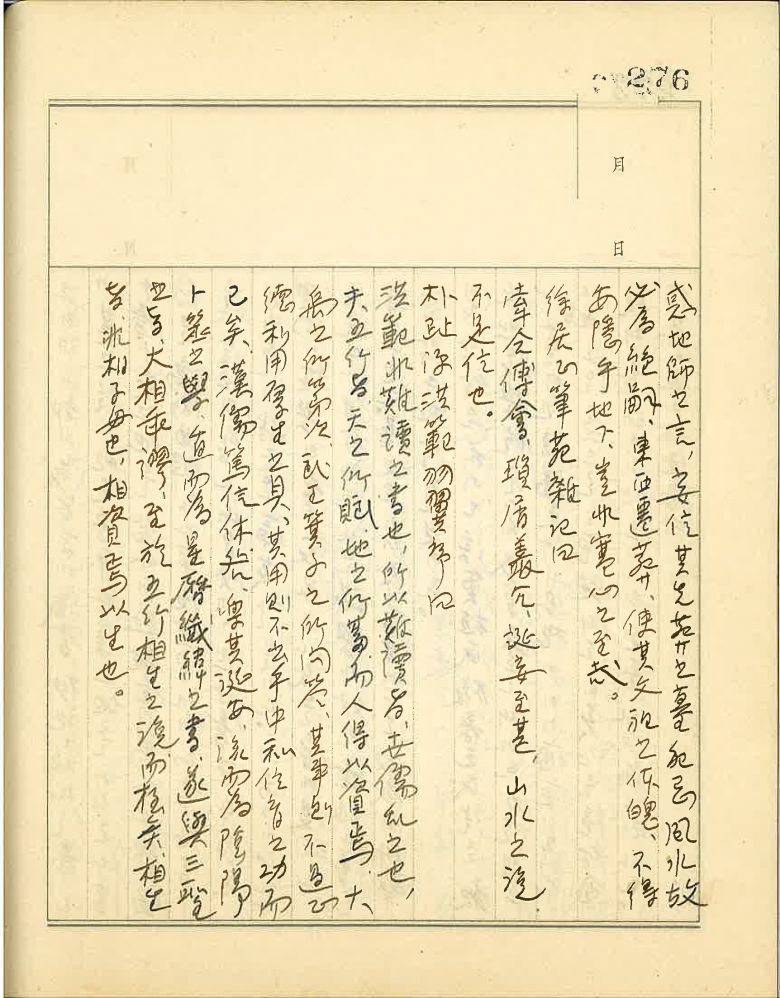 276
月 日
惑地師之言，妄信其先葬之墓犯忌風水故
必爲絕嗣、東西遷葬、使其父祖之体魄、不得
安隱乎地下、豈非寒心之至哉。
徐居正筆苑雜記曰
牽合傅會、瑣屑義，誕妄至甚，山水之說
不足信也。
朴趾源洪範羽翼序曰
洪範非難讀之書也，所以難讀者、世儒亂之也，
夫五行者、天之所賦、地之所蓄、而人得以資焉、大
禹之所第次、武王箕子之所問答、其事則不過正
德利用厚生之具、其用則不出乎中和位育之功而
已矣、漢儒篤信休咎、樂其誕妄、流而爲陰陽
卜筮之學、遁而爲星曆讖緯之書、遂與三聖
之旨、大相乖謬、至於五行相生之說、而極矣、相生
者非相子母也，相資焉以生也。